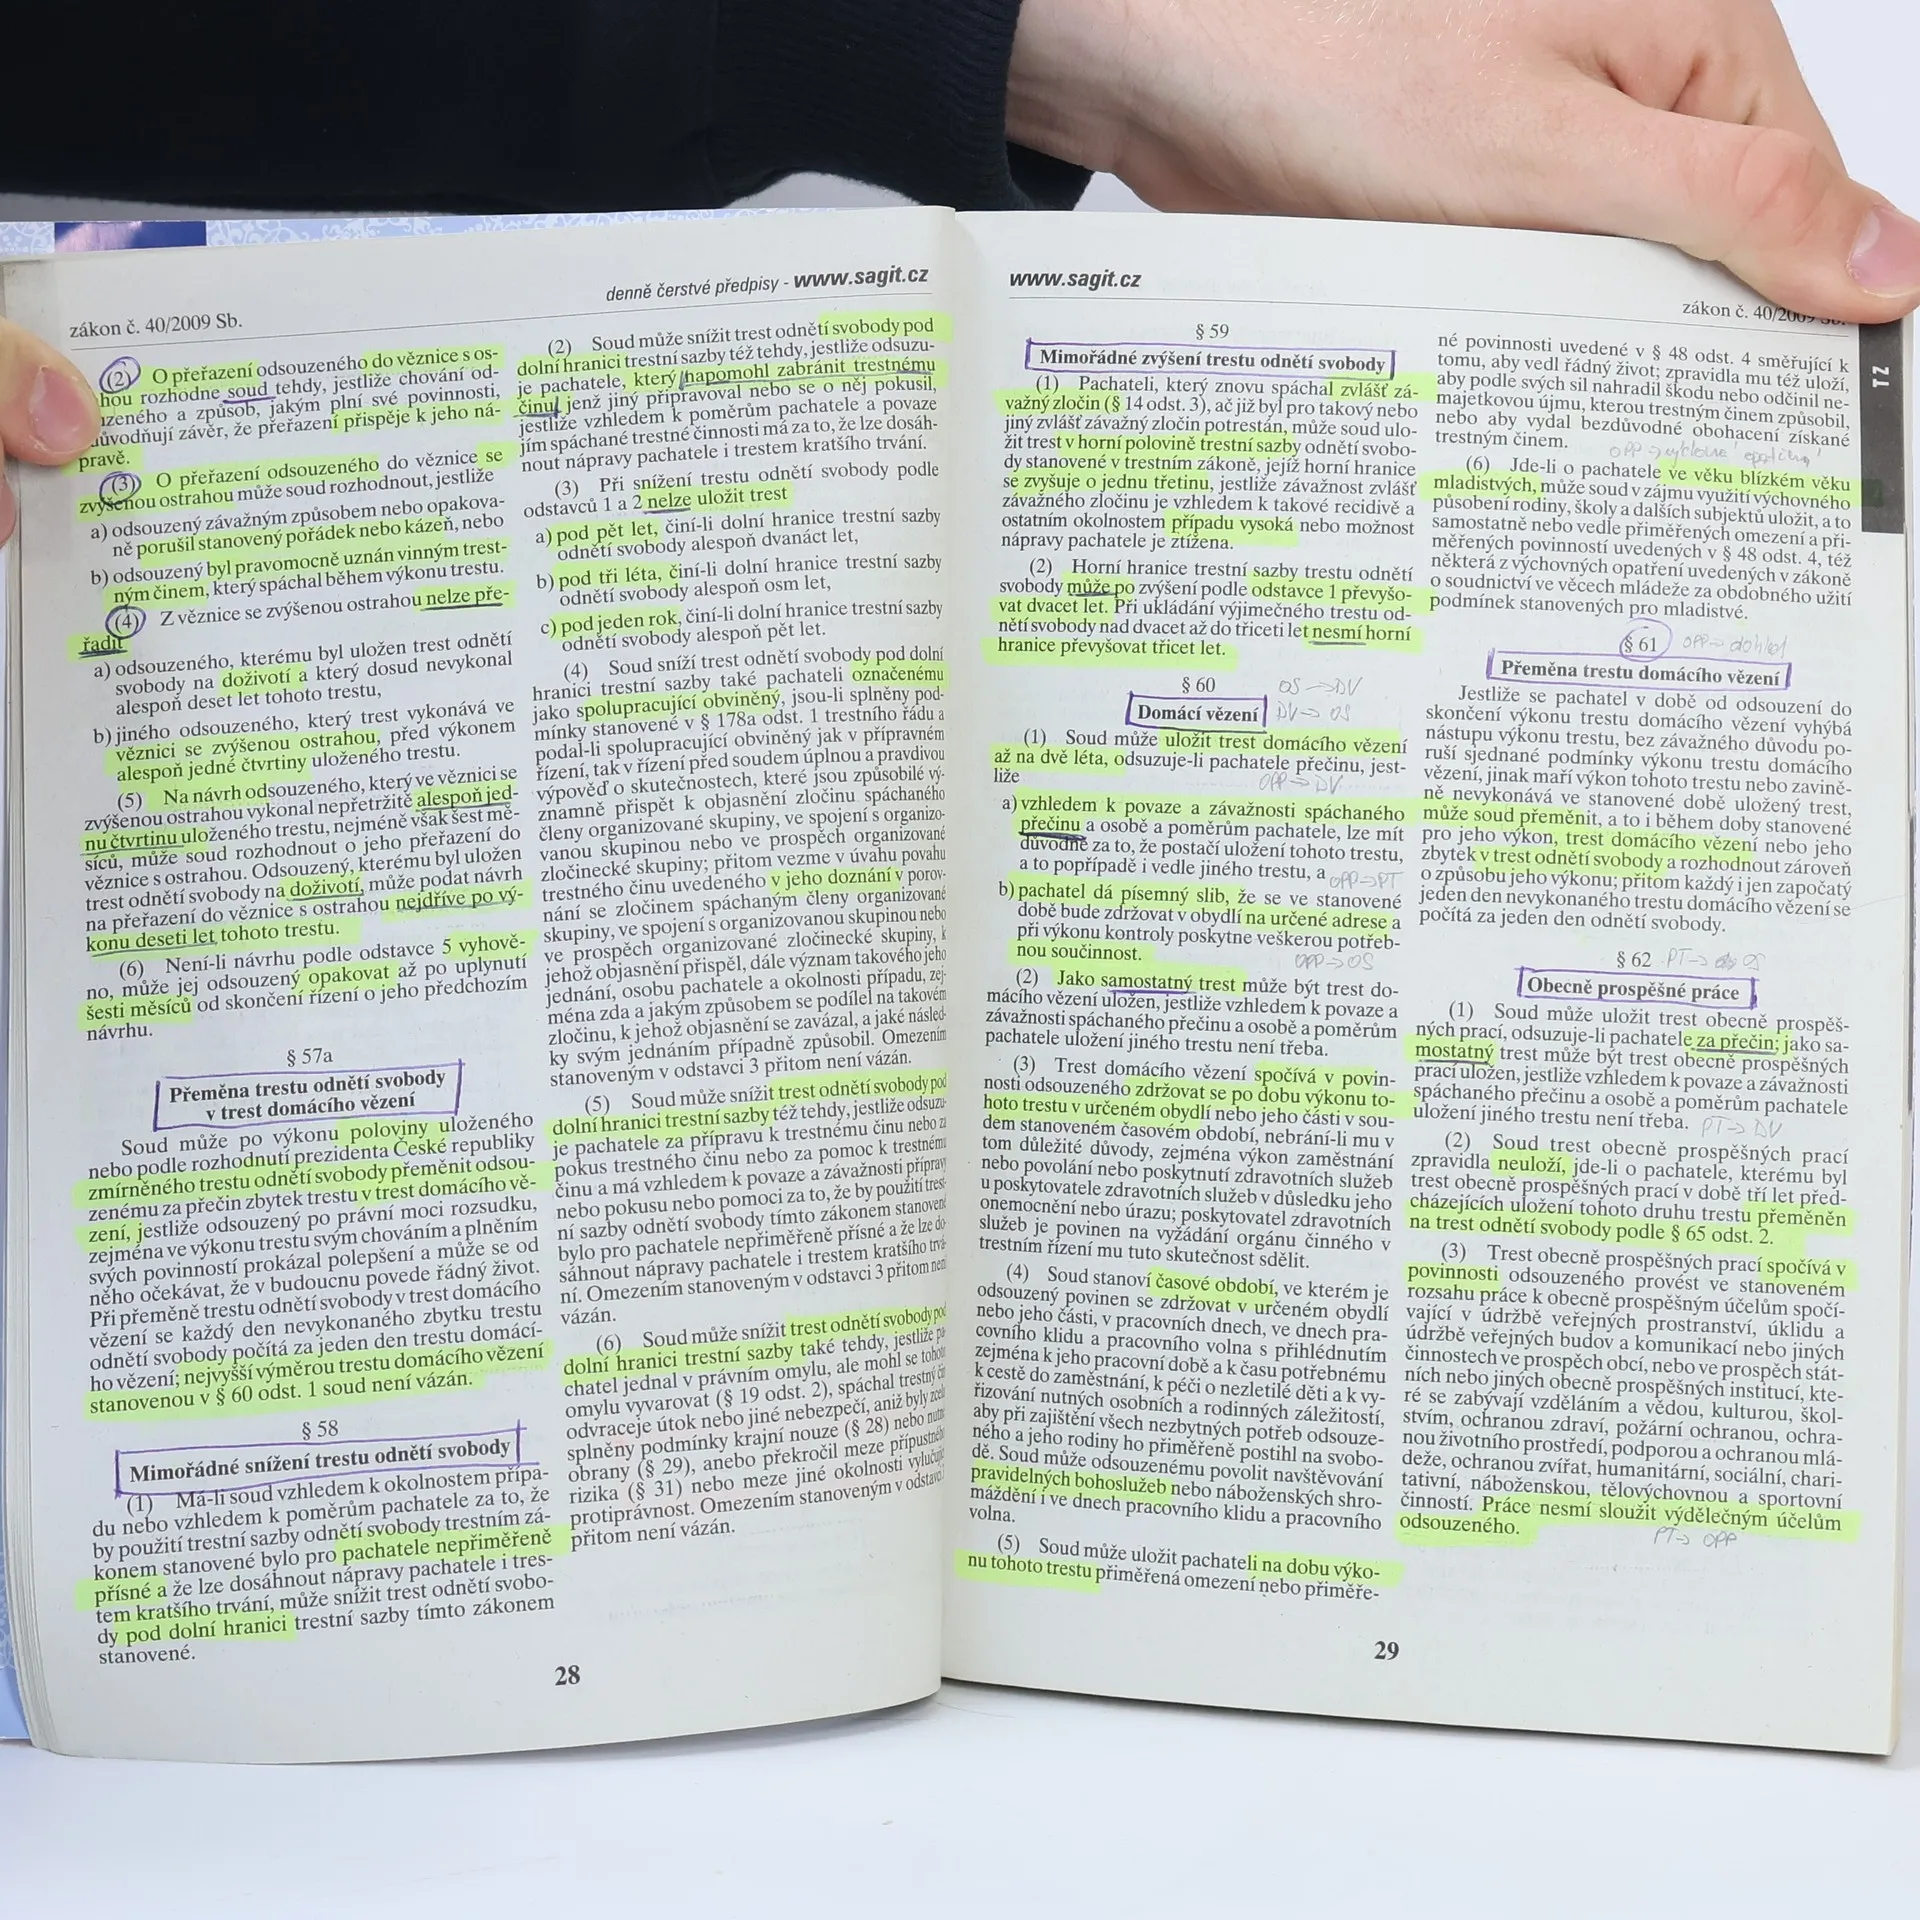 denně čerstvé předpisy - www.sagit.cz
zákon č. 40/2009 Sb.
(2) O přeřazení odsouzeného do věznice s os-
hou rozhodne soud tehdy, jestliže chování od-
uzeného a způsob, jakým plní své povinnosti,
důvodňují závěr, že přeřazení přispěje k jeho ná-
pravě.
(3) O přeřazení odsouzeného do věznice se
zvýšenou ostrahou může soud rozhodnout, jestliže
a) odsouzený závažným způsobem nebo opakova-
ně porušil stanovený pořádek nebo kázeň, nebo
b) odsouzený byl pravomocně uznán vinným trest-
ným činem, který spáchal během výkonu trestu.
(4) Z věznice se zvýšenou ostrahou nelze pře-
řadit
a) odsouzeného, kterému byl uložen trest odnětí
svobody na doživotí a který dosud nevykonal
alespoň deset let tohoto trestu,
b) jiného odsouzeného, který trest vykonává ve
věznici se zvýšenou ostrahou, před výkonem
alespoň jedné čtvrtiny uloženého trestu.
(5) Na návrh odsouzeného, který ve věznici se
zvýšenou ostrahou vykonal nepřetržitě alespoň jed-
nu čtvrtinu uloženého trestu, nejméně však šest mě-
síců, může soud rozhodnout o jeho přeřazení do
věznice s ostrahou. Odsouzený, kterému byl uložen
trest odnětí svobody na doživotí, může podat návrh
na přeřazení do věznice s ostrahou nejdříve po vý-
konu deseti let tohoto trestu.
(6) Není-li návrhu podle odstavce 5 vyhově-
no, může jej odsouzený opakovat až po uplynutí
šesti měsíců od skončení řízení o jeho předchozím
návrhu.
§ 57a
Přeměna trestu odnětí svobody
v trest domácího vězení
Soud může po výkonu poloviny uloženého
nebo podle rozhodnutí prezidenta České republiky
zmírněného trestu odnětí svobody přeměnit odsou-
zenému za přečin zbytek trestu v trest domácího vě-
zení, jestliže odsouzený po právní moci rozsudku,
zejména ve výkonu trestu svým chováním a plněním
svých povinností prokázal polepšení a může se od
něho očekávat, že v budoucnu povede řádný život.
Při přeměně trestu odnětí svobody v trest domácího
vězení se každý den nevykonaného zbytku trestu
odnětí svobody počítá za jeden den trestu domácí-
ho vězení; nejvyšší výměrou trestu domácího vězení
stanovenou v § 60 odst. 1 soud není vázán.
§ 58
Mimořádné snížení trestu odnětí svobody
(1) Má-li soud vzhledem k okolnostem přípa-
du nebo vzhledem k poměrům pachatele za to, že
by použití trestní sazby odnětí svobody trestním zá-
konem stanovené bylo pro pachatele nepřiměřeně
přísné a že lze dosáhnout nápravy pachatele i tres-
tem kratšího trvání, může snížit trest odnětí svobo-
dy pod dolní hranici trestní sazby tímto zákonem
stanovené.
(2) Soud může snížit trest odnětí svobody pod
dolní hranici trestní sazby též tehdy, jestliže odsuzu-
je pachatele, který napomohl zabránit trestnému
činu, jenž jiný připravoval nebo se o něj pokusil,
jestliže vzhledem k poměrům pachatele a povaze
jím spáchané trestné činnosti má za to, že lze dosáh-
nout nápravy pachatele i trestem kratšího trvání.
(3) Při snížení trestu odnětí svobody podle
odstavců 1 a 2 nelze uložit trest
a) pod pět let, činí-li dolní hranice trestní sazby
odnětí svobody alespoň dvanáct let,
b) pod tři léta, činí-li dolní hranice trestní sazby
odnětí svobody alespoň osm let,
c) pod jeden rok, činí-li dolní hranice trestní sazby
odnětí svobody alespoň pět let.
(4) Soud sníží trest odnětí svobody pod dolní
hranici trestní sazby také pachateli označenému
jako spolupracující obviněný, jsou-li splněny pod-
mínky stanovené v § 178a odst. 1 trestního řádu a
podal-li spolupracující obviněný jak v přípravném
řízení, tak v řízení před soudem úplnou a pravdivou
výpověď o skutečnostech, které jsou způsobilé vý-
znamně přispět k objasnění zločinu spáchaného
členy organizované skupiny, ve spojení s organizo-
vanou skupinou nebo ve prospěch organizované
zločinecké skupiny; přitom vezme v úvahu povahu
trestného činu uvedeného v jeho doznání v porov-
nání se zločinem spáchaným členy organizované
skupiny, ve spojení s organizovanou skupinou nebo
ve prospěch organizované zločinecké skupiny, k
jehož objasnění přispěl, dále význam takového jeho
jednání, osobu pachatele a okolnosti případu, zej-
ména zda a jakým způsobem se podílel na takovém
zločinu, k jehož objasnění se zavázal, a jaké násled-
ky svým jednáním případně způsobil. Omezením
stanoveným v odstavci 3 přitom není vázán.
(5) Soud může snížit trest odnětí svobody pod
dolní hranici trestní sazby též tehdy, jestliže odsuzu-
je pachatele za přípravu k trestnému činu nebo za
pokus trestného činu nebo za pomoc k trestnému
činu a má vzhledem k povaze a závažnosti přípravy
nebo pokusu nebo pomoci za to, že by použití trest-
ní sazby odnětí svobody tímto zákonem stanovené
bylo pro pachatele nepřiměřeně přísné a že lze do-
sáhnout nápravy pachatele i trestem kratšího trvá-
ní. Omezením stanoveným v odstavci 3 přitom není
vázán.
(6) Soud může snížit trest odnětí svobody pod
dolní hranici trestní sazby také tehdy, jestliže pa-
chatel jednal v právním omylu, ale mohl se tohoto
omylu vyvarovat (§ 19 odst. 2), spáchal trestný čin
odvraceje útok nebo jiné nebezpečí, aniž byly zcela
splněny podmínky krajní nouze (§ 28) nebo nutné
obrany (§ 29), anebo překročil meze přípustného
rizika (§ 31) nebo meze jiné okolnosti vylučující
protiprávnost. Omezením stanoveným v odstavci
přitom není vázán.
28
www.sagit.cz
zákon č. 40/2009 Sb.
TZ
§ 59
Mimořádné zvýšení trestu odnětí svobody
(1) Pachateli, který znovu spáchal zvlášť zá-
važný zločin (§ 14 odst. 3), ač již byl pro takový nebo
jiný zvlášť závažný zločin potrestán, může soud ulo-
žit trest v horní polovině trestní sazby odnětí svobo-
dy stanovené v trestním zákoně, jejíž horní hranice
se zvyšuje o jednu třetinu, jestliže závažnost zvlášť
závažného zločinu je vzhledem k takové recidivě a
ostatním okolnostem případu vysoká nebo možnost
nápravy pachatele je ztížena.
(2) Horní hranice trestní sazby trestu odnětí
svobody může po zvýšení podle odstavce 1 převyšo-
vat dvacet let. Při ukládání výjimečného trestu od-
nětí svobody nad dvacet až do třiceti let nesmí horní
hranice převyšovat třicet let.
§ 60 OS→DV
Domácí vězení DV→OS
(1) Soud může uložit trest domácího vězení
až na dvě léta, odsuzuje-li pachatele přečinu, jest-
liže OPP→DV
a) vzhledem k povaze a závažnosti spáchaného
přečinu a osobě a poměrům pachatele, lze mít
důvodně za to, že postačí uložení tohoto trestu,
a to popřípadě i vedle jiného trestu, a OPP→PT
b) pachatel dá písemný slib, že se ve stanovené
době bude zdržovat v obydlí na určené adrese a
při výkonu kontroly poskytne veškerou potřeb-
nou součinnost. OPP→OS
(2) Jako samostatný trest může být trest do-
mácího vězení uložen, jestliže vzhledem k povaze a
závažnosti spáchaného přečinu a osobě a poměrům
pachatele uložení jiného trestu není třeba.
(3) Trest domácího vězení spočívá v povin-
nosti odsouzeného zdržovat se po dobu výkonu to-
hoto trestu v určeném obydlí nebo jeho části v sou-
dem stanoveném časovém období, nebrání-li mu v
tom důležité důvody, zejména výkon zaměstnání
nebo povolání nebo poskytnutí zdravotních služeb
u poskytovatele zdravotních služeb v důsledku jeho
onemocnění nebo úrazu; poskytovatel zdravotních
služeb je povinen na vyžádání orgánu činného v
trestním řízení mu tuto skutečnost sdělit.
(4) Soud stanoví časové období, ve kterém je
odsouzený povinen se zdržovat v určeném obydlí
nebo jeho části, v pracovních dnech, ve dnech pra-
covního klidu a pracovního volna s přihlédnutím
zejména k jeho pracovní době a k času potřebnému
k cestě do zaměstnání, k péči o nezletilé děti a k vy-
řizování nutných osobních a rodinných záležitostí,
aby při zajištění všech nezbytných potřeb odsouze-
ného a jeho rodiny ho přiměřeně postihl na svobo-
dě. Soud může odsouzenému povolit navštěvování
pravidelných bohoslužeb nebo náboženských shro-
máždění i ve dnech pracovního klidu a pracovního
volna.
(5) Soud může uložit pachateli na dobu výko-
nu tohoto trestu přiměřená omezení nebo přiměře-
né povinnosti uvedené v § 48 odst. 4 směřující k
tomu, aby vedl řádný život; zpravidla mu též uloží,
aby podle svých sil nahradil škodu nebo odčinil ne-
majetkovou újmu, kterou trestným činem způsobil,
nebo aby vydal bezdůvodné obohacení získané
trestným činem. OPP→
(6) Jde-li o pachatele ve věku blízkém věku
mladistvých, může soud v zájmu využití výchovného
působení rodiny, školy a dalších subjektů uložit, a to
samostatně nebo vedle přiměřených omezení a při-
měřených povinností uvedených v § 48 odst. 4, též
některá z výchovných opatření uvedených v zákoně
o soudnictví ve věcech mládeže za obdobného užití
podmínek stanovených pro mladistvé.
§ 61 OPP→dohled
Přeměna trestu domácího vězení
Jestliže se pachatel v době od odsouzení do
skončení výkonu trestu domácího vězení vyhýbá
nástupu výkonu trestu, bez závažného důvodu po-
ruší sjednané podmínky výkonu trestu domácího
vězení, jinak maří výkon tohoto trestu nebo zavině-
ně nevykonává ve stanovené době uložený trest,
může soud přeměnit, a to i během doby stanovené
pro jeho výkon, trest domácího vězení nebo jeho
zbytek v trest odnětí svobody a rozhodnout zároveň
o způsobu jeho výkonu; přitom každý i jen započatý
jeden den nevykonaného trestu domácího vězení se
počítá za jeden den odnětí svobody.
§ 62 PT→ OS
Obecně prospěšné práce
(1) Soud může uložit trest obecně prospěš-
ných prací, odsuzuje-li pachatele za přečin; jako sa-
mostatný trest může být trest obecně prospěšných
prací uložen, jestliže vzhledem k povaze a závažnosti
spáchaného přečinu a osobě a poměrům pachatele
uložení jiného trestu není třeba. PT→DV
(2) Soud trest obecně prospěšných prací
zpravidla neuloží, jde-li o pachatele, kterému byl
trest obecně prospěšných prací v době tří let před-
cházejících uložení tohoto druhu trestu přeměněn
na trest odnětí svobody podle § 65 odst. 2.
(3) Trest obecně prospěšných prací spočívá v
povinnosti odsouzeného provést ve stanoveném
rozsahu práce k obecně prospěšným účelům spočí-
vající v údržbě veřejných prostranství, úklidu a
údržbě veřejných budov a komunikací nebo jiných
činnostech ve prospěch obcí, nebo ve prospěch stát-
ních nebo jiných obecně prospěšných institucí, kte-
ré se zabývají vzděláním a vědou, kulturou, škol-
stvím, ochranou zdraví, požární ochranou, ochra-
nou životního prostředí, podporou a ochranou mlá-
deže, ochranou zvířat, humanitární, sociální, chari-
tativní, náboženskou, tělovýchovnou a sportovní
činností. Práce nesmí sloužit výdělečným účelům
odsouzeného.
PT→ OPP
29